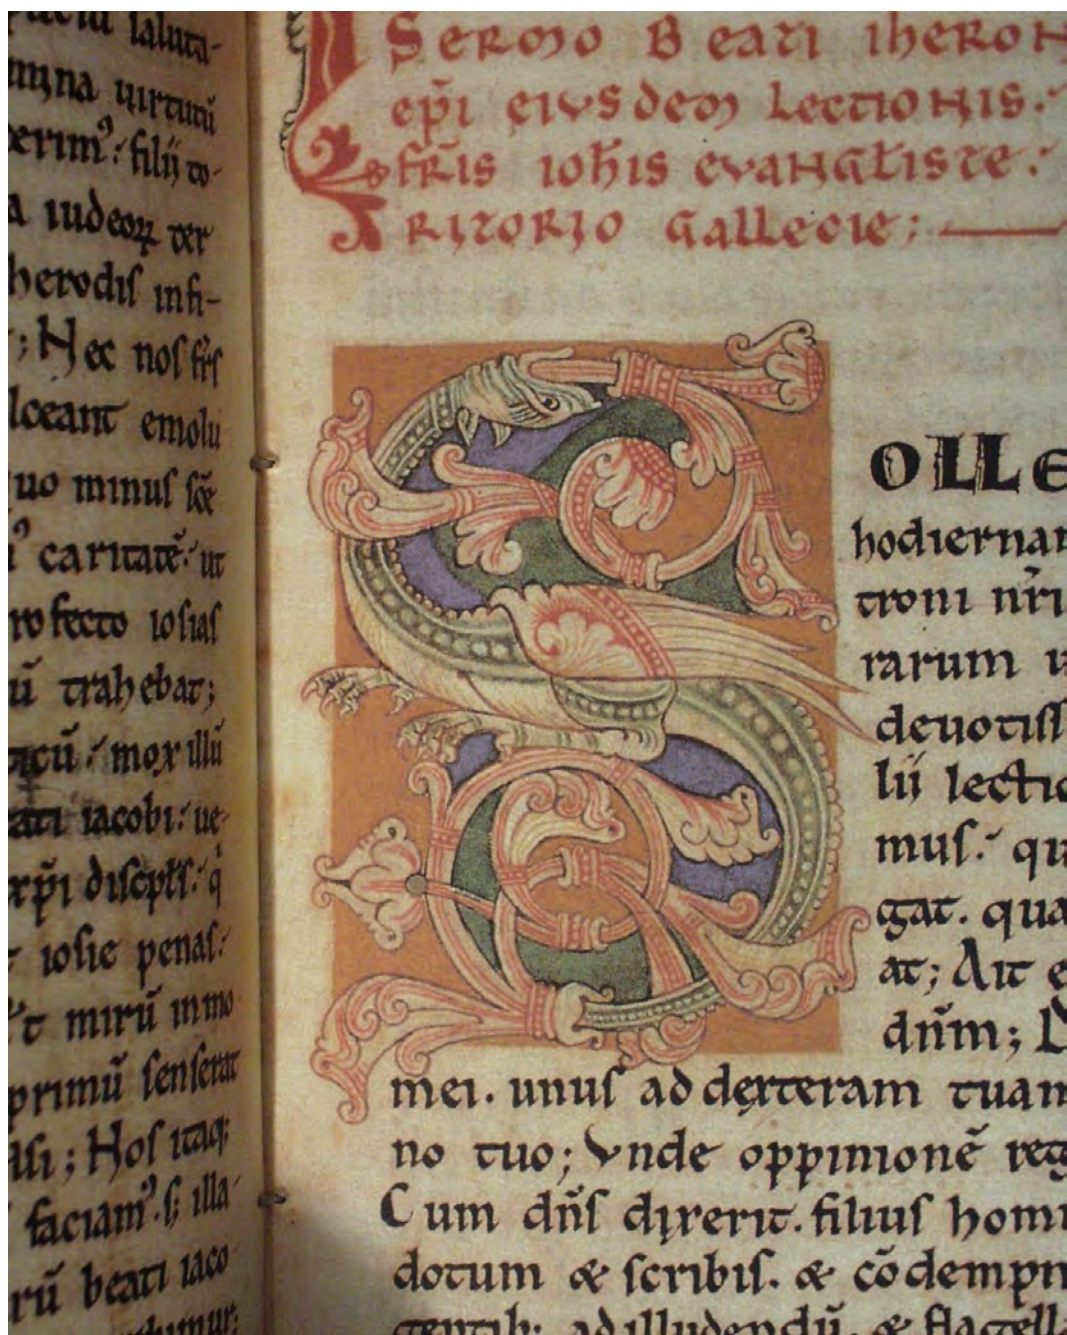 saluta-
uirtutū
filii to-
a iudeoꝝ ter
herodis infi-
; Hec nos frs̄
emolu
uo minus scē
caritatē: ut
iosias
ū trahebat;
mox illū
iacobi: ue-
xp̄i
iosie penas:
mirū in mo
primū senserat
; Hos itaq;
faciam⁹. s; illa-
rū beati iaco
SERMO BEATI IHERON
EP̄I EIVSDEM LECTIONIS:
FR̄IS IOH̄IS EVANGL̄ISTE:
TRITORIO GALLECIE;
SOLLE
hodiernam
troni nr̄i
rarum u
deuotiss
lii lectio
mus: qu
gat. qua
at; Ait e
dn̄m; D
mei. unus ad dexteram tuam
no tuo; Vnde oppinionē reg
Cum dn̄s dixerit. filius homi
dotum & scribis. & cōdempn
gentib; ad illudendū. & flagell